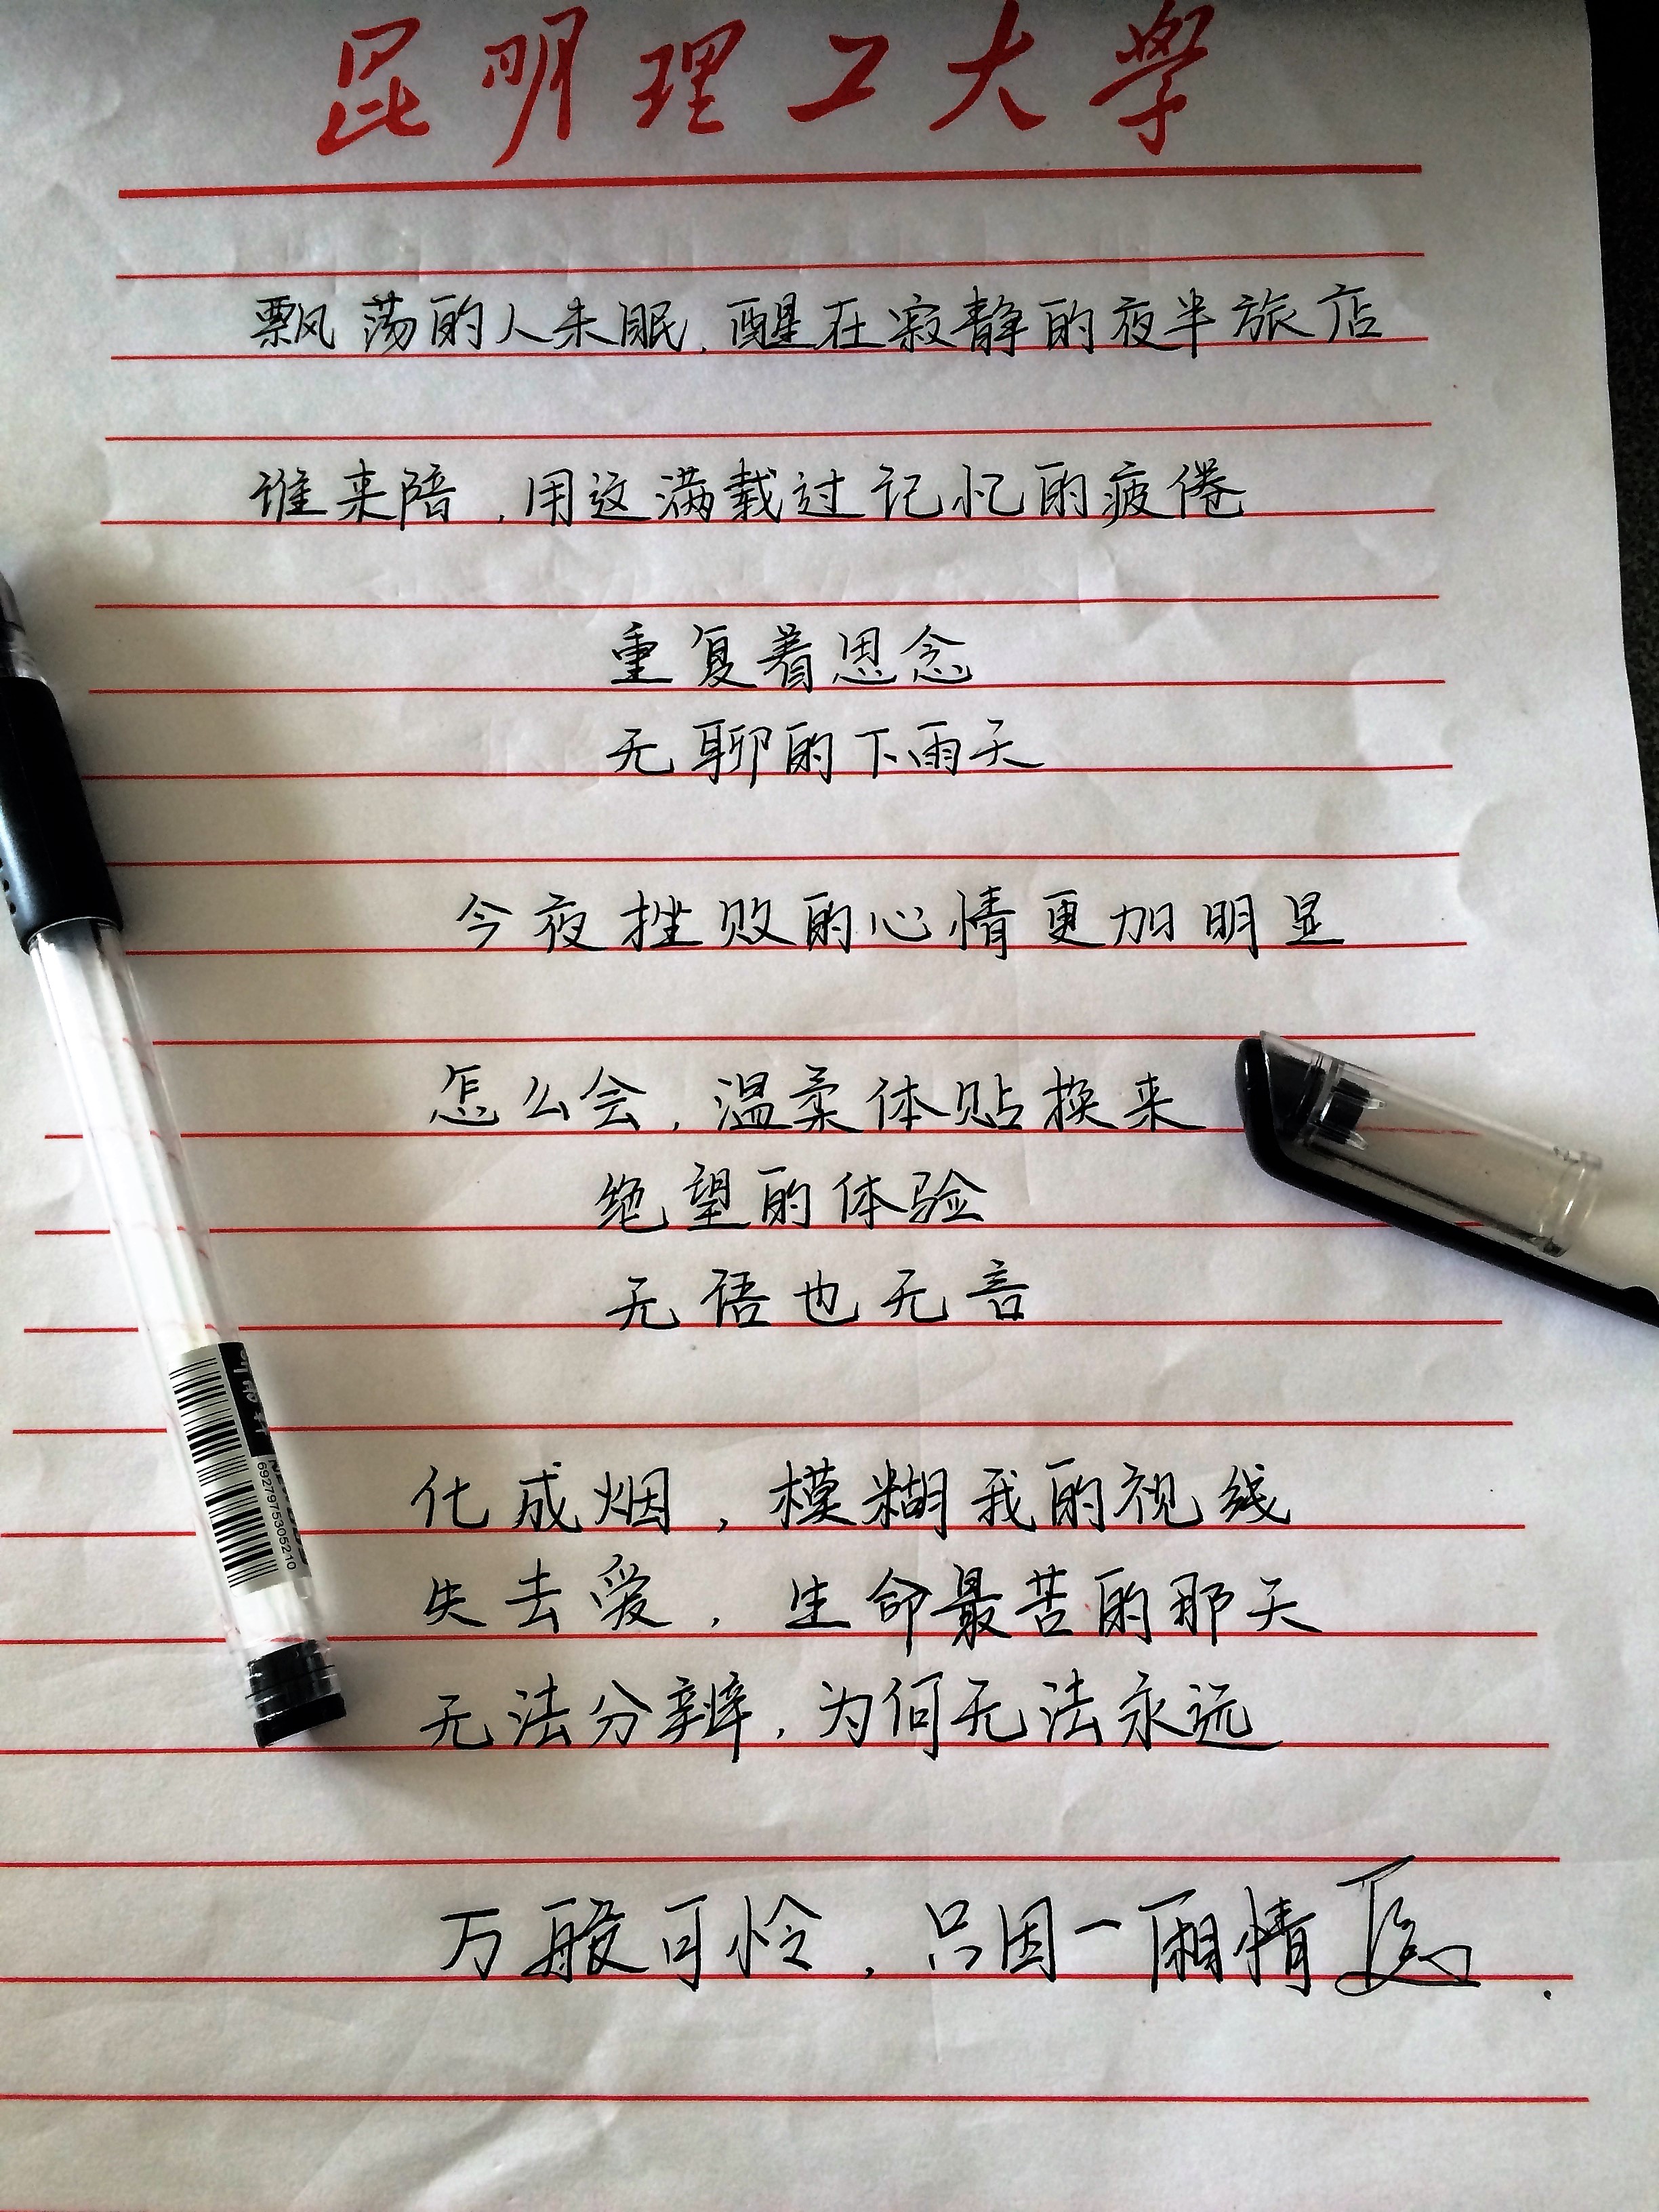 昆明理工大学
飘荡的人未眠，醒在寂静的夜半旅店
谁来陪，用这满载过记忆的疲倦
重复着思念
无聊的下雨天
今夜挫败的心情更加明显
怎么会，温柔体贴换来
绝望的体验
无语也无言
化成烟，模糊我的视线
失去爱，生命最苦的那天
无法分辨，为何无法永远
万般可怜，只因一厢情愿.
6927975305210